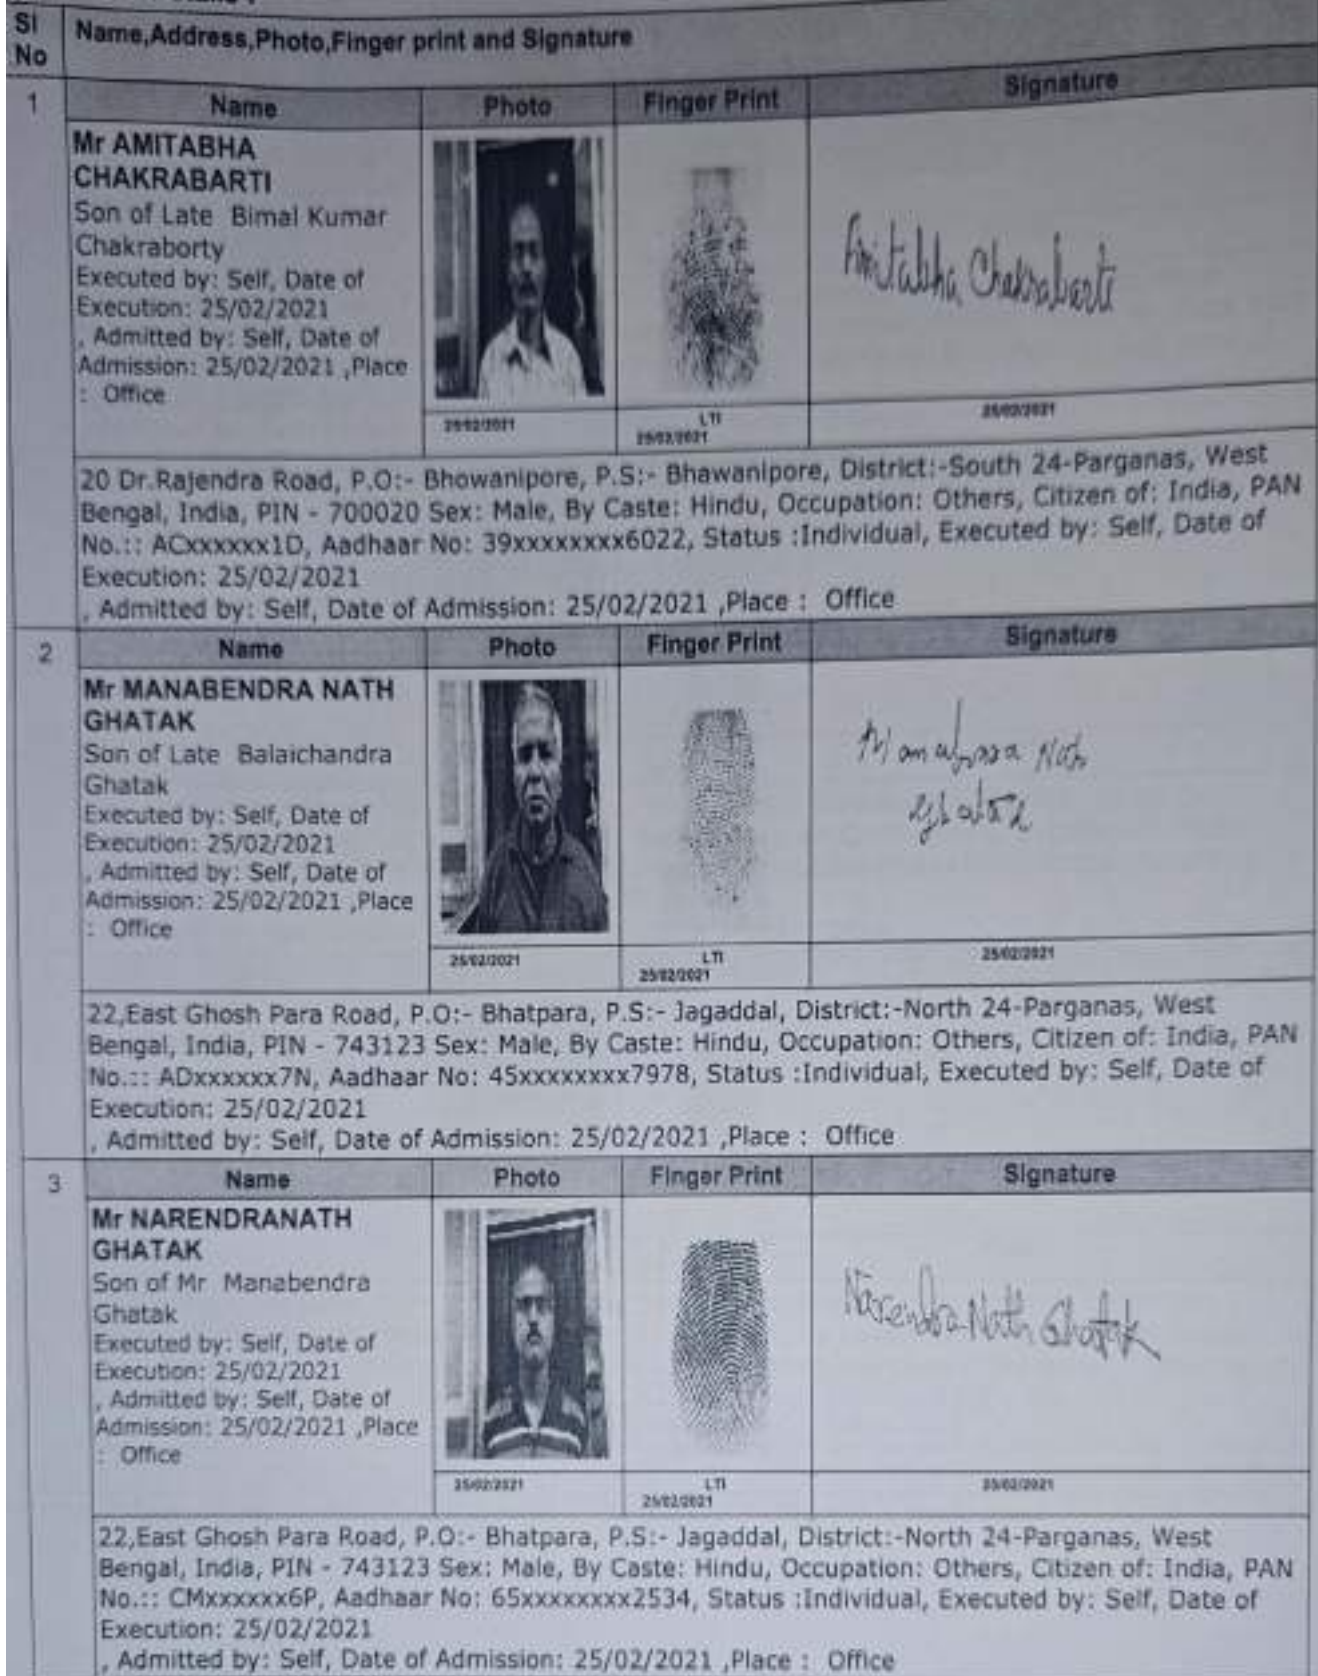 Sl No
Name,Address,Photo,Finger print and Signature
1
Name Photo Finger Print Signature
Mr AMITABHA
CHAKRABARTI
Son of Late Bimal Kumar
Chakraborty
Executed by: Self, Date of
Execution: 25/02/2021
, Admitted by: Self, Date of
Admission: 25/02/2021 ,Place
: Office
Amitabha Chakrabarti
25/02/2021
LTI
25/02/2021
25/02/2021
20 Dr.Rajendra Road, P.O:- Bhowanipore, P.S:- Bhawanipore, District:-South 24-Parganas, West
Bengal, India, PIN - 700020 Sex: Male, By Caste: Hindu, Occupation: Others, Citizen of: India, PAN
No.:: ACxxxxxx1D, Aadhaar No: 39xxxxxxxx6022, Status :Individual, Executed by: Self, Date of
Execution: 25/02/2021
, Admitted by: Self, Date of Admission: 25/02/2021 ,Place : Office
2
Name Photo Finger Print Signature
Mr MANABENDRA NATH
GHATAK
Son of Late Balaichandra
Ghatak
Executed by: Self, Date of
Execution: 25/02/2021
, Admitted by: Self, Date of
Admission: 25/02/2021 ,Place
: Office
Nath
Ghatak
25/02/2021
LTI
25/02/2021
25/02/2021
22,East Ghosh Para Road, P.O:- Bhatpara, P.S:- Jagaddal, District:-North 24-Parganas, West
Bengal, India, PIN - 743123 Sex: Male, By Caste: Hindu, Occupation: Others, Citizen of: India, PAN
No.:: ADxxxxxx7N, Aadhaar No: 45xxxxxxxx7978, Status :Individual, Executed by: Self, Date of
Execution: 25/02/2021
, Admitted by: Self, Date of Admission: 25/02/2021 ,Place : Office
3
Name Photo Finger Print Signature
Mr NARENDRANATH
GHATAK
Son of Mr Manabendra
Ghatak
Executed by: Self, Date of
Execution: 25/02/2021
, Admitted by: Self, Date of
Admission: 25/02/2021 ,Place
: Office
Narendra Nath Ghatak
25/02/2021
LTI
25/02/2021
25/02/2021
22,East Ghosh Para Road, P.O:- Bhatpara, P.S:- Jagaddal, District:-North 24-Parganas, West
Bengal, India, PIN - 743123 Sex: Male, By Caste: Hindu, Occupation: Others, Citizen of: India, PAN
No.:: CMxxxxxx6P, Aadhaar No: 65xxxxxxxx2534, Status :Individual, Executed by: Self, Date of
Execution: 25/02/2021
, Admitted by: Self, Date of Admission: 25/02/2021 ,Place : Office